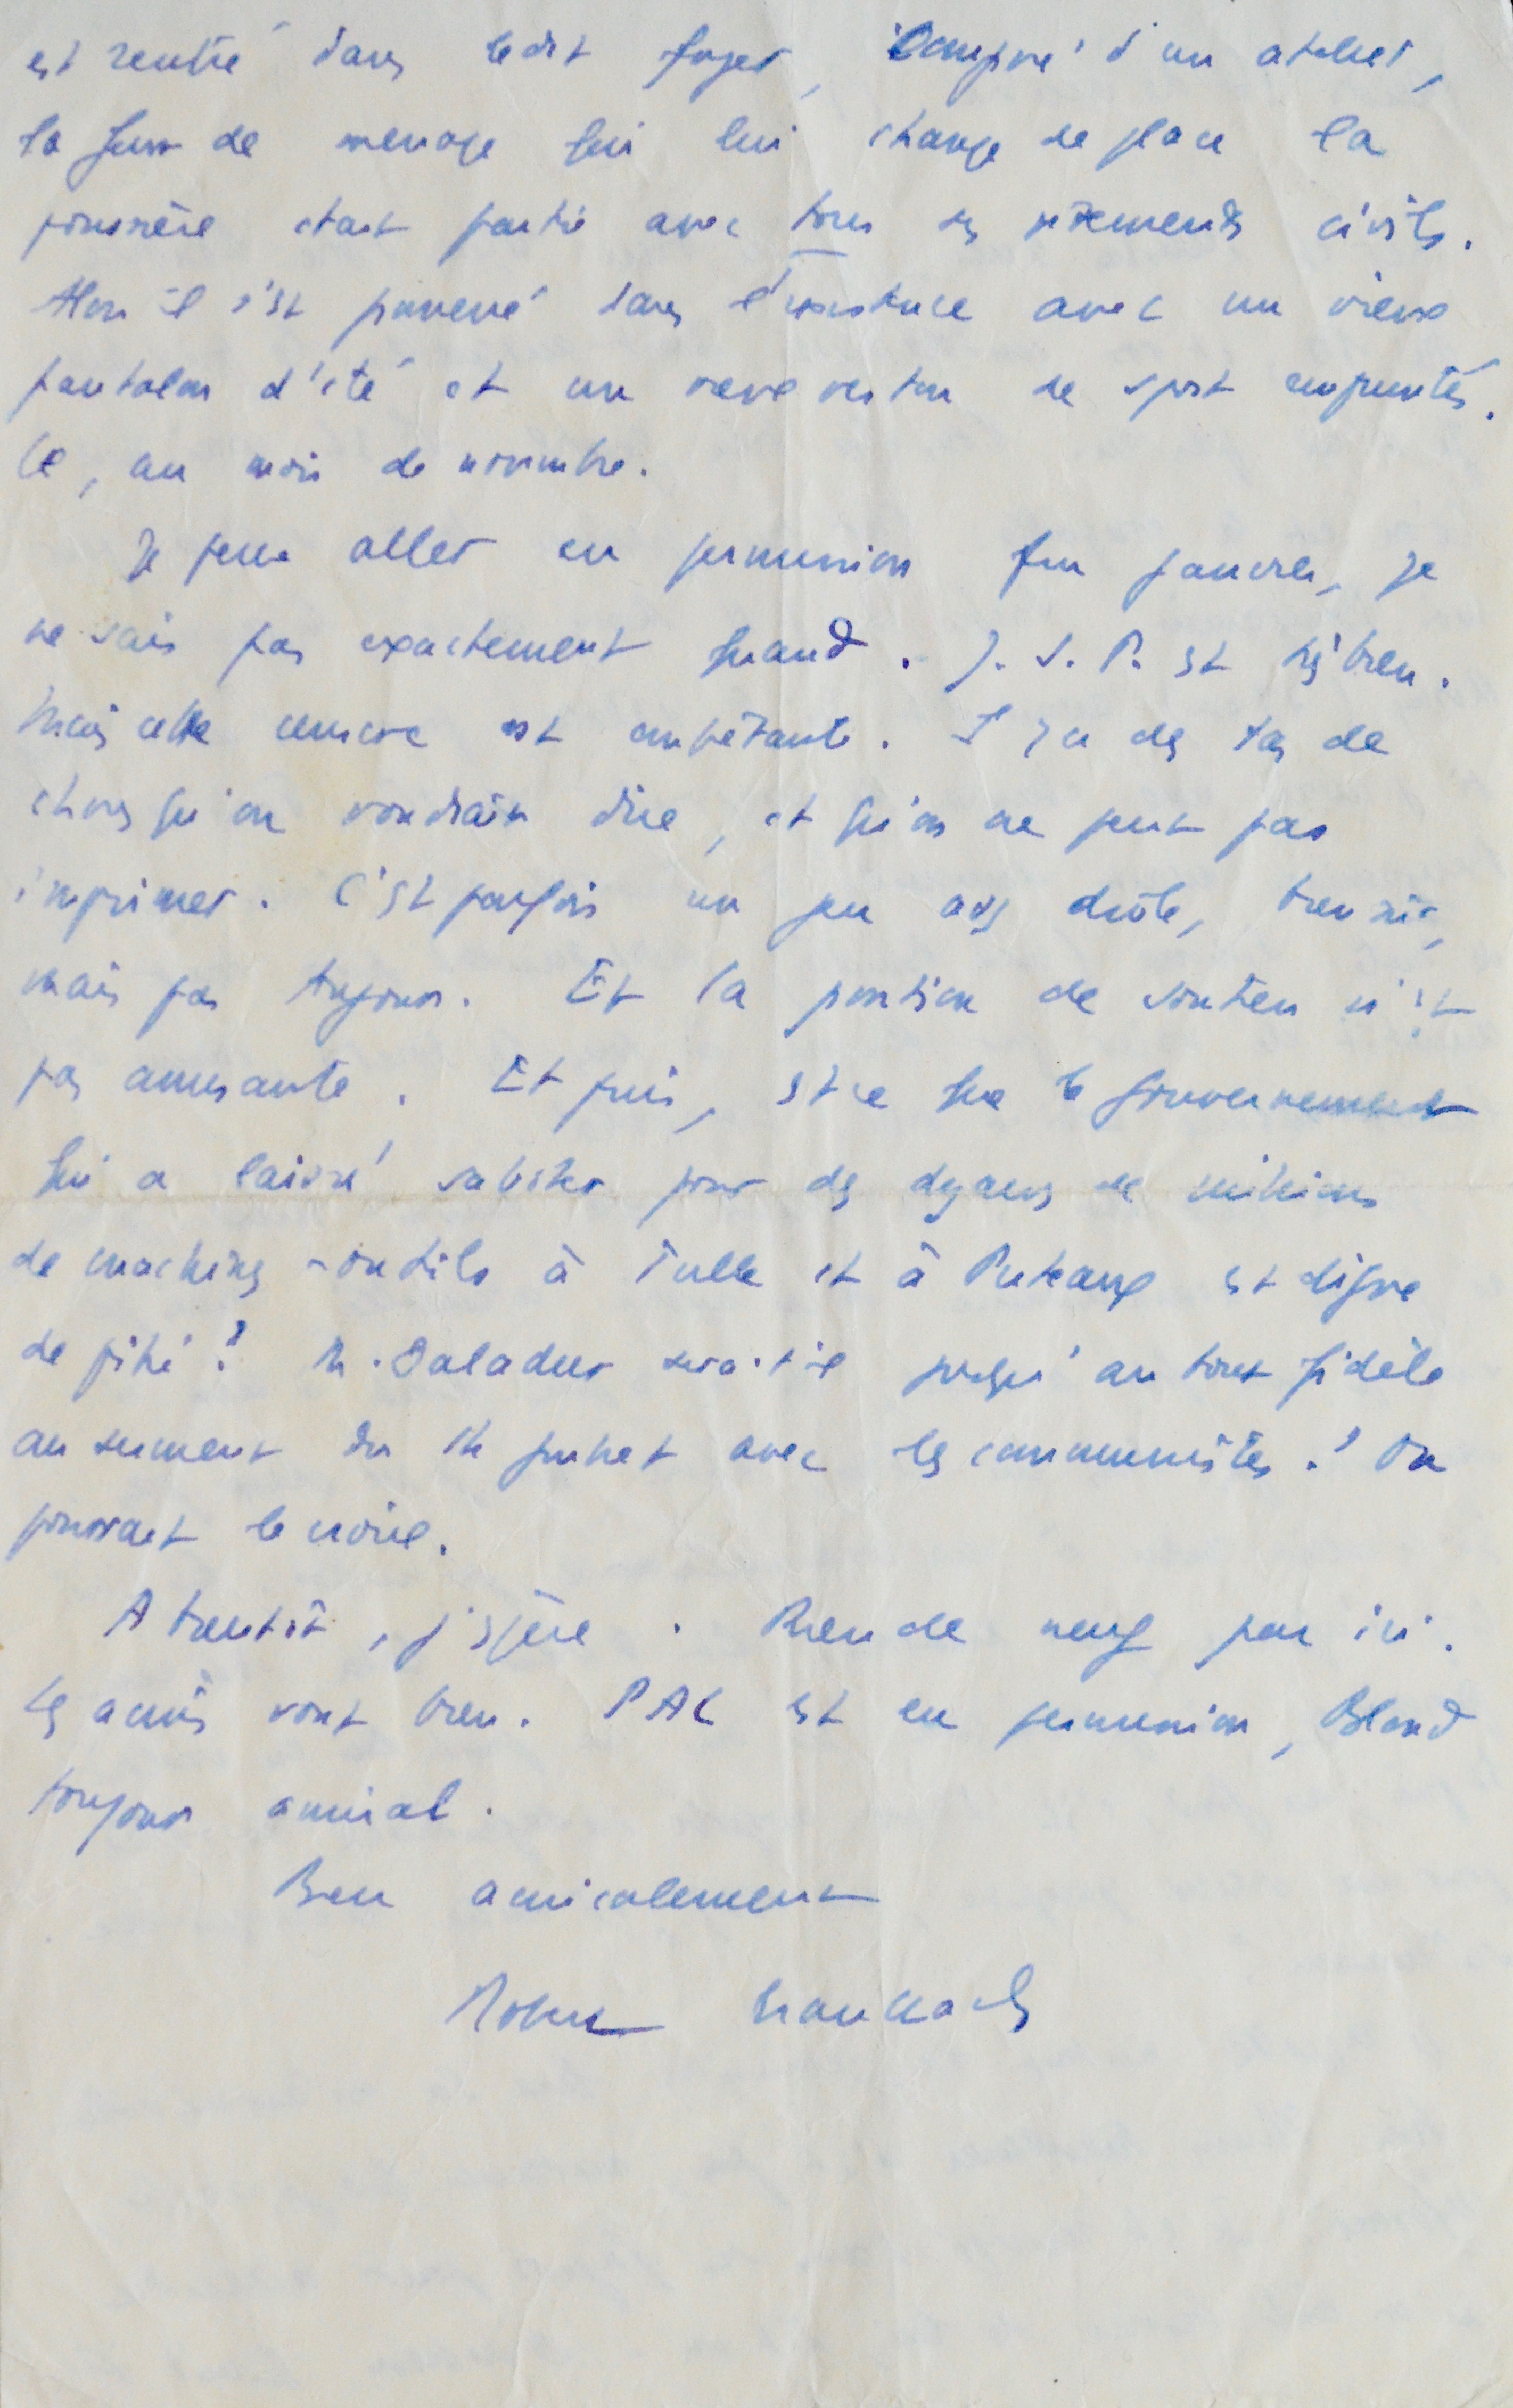 est rentré dans ledit foyer, composé d'un atelier,
la femme de menage qui lui change de place la
poussière était partie avec tous ses vêtements civils.
Alors il s'est promené dans l'existence avec un vieux
pantalon d'été et un vieux veston de sport empruntés.
Ce, au mois de novembre.
Je pense aller en permission fin janvier, je
ne sais pas exactement quand. J. S. P. est très bien.
Mais cette censure est embêtante. Il y a des tas de
choses qu'on voudrait dire, et qu'on ne peut pas
imprimer. C'est parfois un peu drôle, bien sûr,
mais pas toujours. Et la position de soutien n'est
pas amusante. Et puis, est ce que le gouvernement
qui a laissé subsister pour des de millions
de machines-outils à Tulle et à Puteaux est digne
de pitié ? M. Daladier serait-il jusqu'au bout fidèle
au serment du 14 juillet avec les communistes ? On
pourrait le croire.
A bientôt, j'espère. Rien de neuf par ici.
Les amis vont bien. PAC est en permission, Blond
toujours amiral.
Bien amicalement
Robert Brasillach